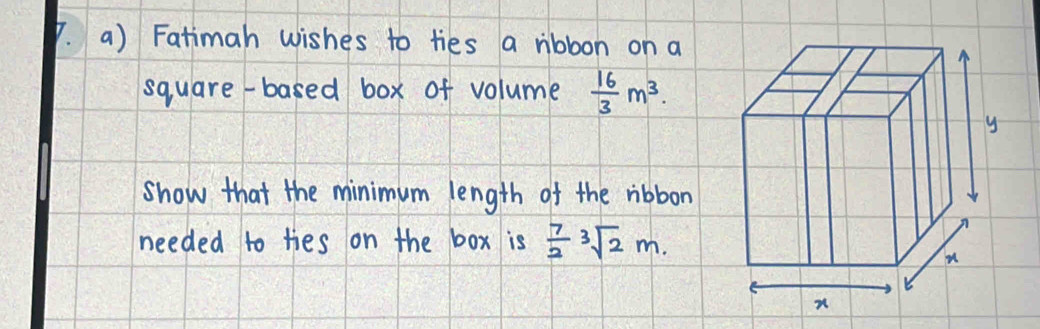 7. a) Fatimah wishes to ties a ribbon on a
square-based box of volume 16/3 m³.
y
Show that the minimum length of the ribbon
needed to ties on the box is 7/2 ³√2 m.
x
x